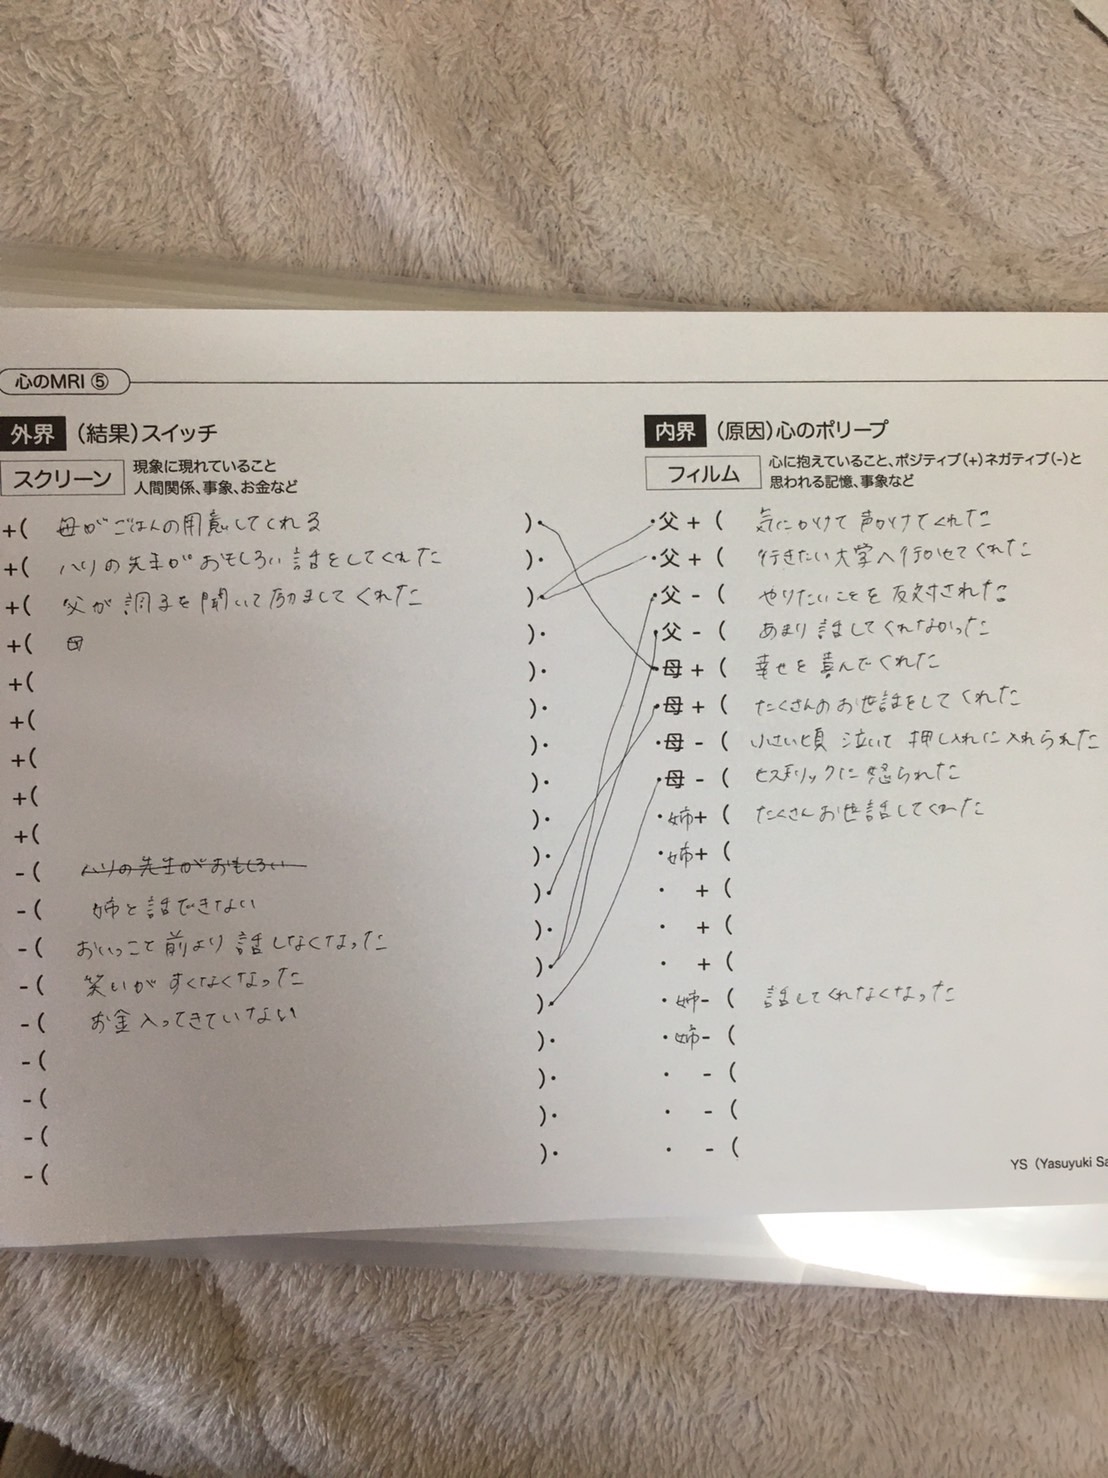 心のMRI ⑤
外界 (結果)スイッチ
スクリーン 現象に現れていること
人間関係、事象、お金など
+( 母がごはんの用意してくれる )・
+( ハリの先生がおもしろい話をしてくれた )・
+( 父が調子を聞いて励ましてくれた )・
+( 母 )・
+( )・
+( )・
+( )・
+( )・
+( )・
-( ハリの先生がおもしろい )・
-( 姉と話できない )・
-( おいっこと前より話しなくなった )・
-( 笑いがすくなくなった )・
-( お金入ってきていない )・
-( )・
-( )・
-( )・
-( )・
内界 (原因)心のポリープ
フィルム 心に抱えていること、ポジティブ(+)ネガティブ(-)と
思われる記憶、事象など
・父 + ( 気にかけて声かけてくれた
・父 + ( 行きたい大学へ行かせてくれた
・父 - ( やりたいことを反対された
・父 - ( あまり話してくれなかった
・母 + ( 幸せを喜んでくれた
・母 + ( たくさんのお世話をしてくれた
・母 - ( 小さい頃泣いて押し入れに入れられた
・母 - ( ヒステリックに怒られた
・姉+ ( たくさんお世話してくれた
・姉+ (
・ + (
・ + (
・ + (
・姉- ( 話してくれなくなった
・姉- (
・ - (
・ - (
・ - (
YS (Yasuyuki Sa